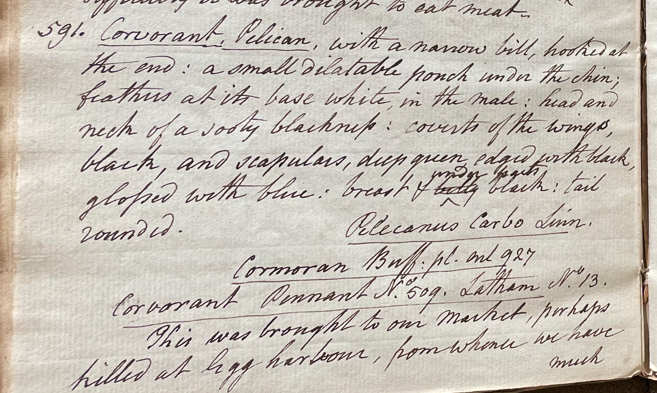 difficulty it was brought to eat meat.
591. Corvorant, Pelican, with a narrow bill, hooked at
the end: a small dilatable pouch under the chin;
feathers at its base white, in the male: head and
neck of a sooty blackness: coverts of the wings,
black, and scapulars, deep green, edged with black,
under parts
glossed with blue: breast & belly black: tail
rounded.
Pelecanus Carbo Linn.
Cormoran Buff. pl. enl 927
Corvorant Pennant No. 509. Latham No. 13.
This was brought to our market, perhaps
killed at Egg harbour, from whence we have
much